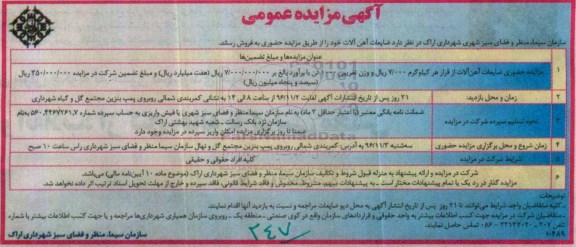 آگهی مزایده عمومی
سازمان سیما، منظر و فضای سبز شهری شهرداری اراک در نظر دارد ضایعات آهن آلات خود را از طریق مزایده حضوری به فروش رساند.
عنوان مزایده‌ها و مبلغ تضمین‌ها
۱ مزایده حضوری ضایعات آهن آلات از قرار هر کیلوگرم ۷/۰۰۰ ریال و وزن تقریبی تن با برآورد بالغ بر ۷/۰۰۰/۰۰۰/۰۰۰ ریال (هفت میلیارد ریال) و مبلغ تضمین شرکت در مزایده ۳۵۰/۰۰۰/۰۰۰ ریال
(سیصد و پنجاه میلیون ریال)
۲ زمان و محل بازدید: ۲۱ روز پس از تاریخ انتشارات آگهی لغایت ۹۶/۱۱/۲ از ساعت ۸ الی ۱۴ به نشانی کمربندی شمالی روبروی پمپ بنزین مجتمع گل و گیاه شهرداری
۳ نحوه تسلیم سپرده شرکت در مزایده ضمانت نامه بانکی معتبر (با اعتبار حداقل ۳ ماه) به نام سازمان سیما، منظر و فضای سبز شهری یا فیش واریزی به حساب سپرده شماره
سازمان نزد بانک رسالت - شعبه شهید بهشتی اراک
ضمنا تا روز برگزاری مزایده امکان واریز سپرده در مزایده وجود دارد
۴ زمان شروع و محل برگزاری مزایده حضوری سه‌شنبه ۹۶/۱۱/۳ به آدرس: کمربندی شمالی روبروی پمپ بنزین مجتمع گل و نهال سازمان سیما، منظر و فضای سبز شهرداری راس ساعت ۱۰ صبح
۵ شرایط شرکت در مزایده کلیه افراد حقوقی و حقیقی
۶ شرکت در مزایده و ارائه پیشنهاد به منزله قبول شروط و تکالیف سازمان سیما، منظر و فضای سبز شهری اراک (موضوع ماده ۱۰ آیین‌نامه مالی) می‌باشد.
مزایده گذار در رد یک یا تمام پیشنهادات مختار است - به پیشنهادات مبهم، مشروط، مخدوش و فاقد شرایط قانونی، فاقد سپرده و خارج از مهلت تحویل اسناد ترتیب اثر داده نخواهد شد.
توضیحات:
- کلیه متقاضیان واجد شرایط می‌توانند تا ۲۱ روز پس از تاریخ انتشار آگهی به محل دپو ضایعات مراجعه و یا نسبت به بازدید آنها اقدام نمایند.
- متقاضیان شرکت در مزایده جهت کسب اطلاعات بیشتر به واحد حقوقی و قراردادهای سازمان واقع در کوی صنعتی - منطقه یک - روبروی سازمان همیاری شهرداری‌ها مراجعه و یا جهت کسب اطلاعات بیشتر با شماره
تلفن تماس حاصل نمایند.
۱۰۴۸۹
۲۴۷
سازمان سیما، منظر و فضای سبز شهرداری اراک